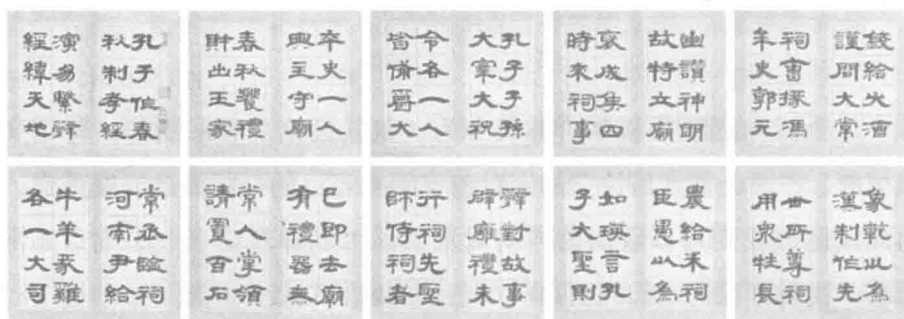 孔子作春
秋制孝經
演易繫辭
經緯天地
卒史一人
典主守廟
春秋饗禮
財出王家
孔子子孫
大宰大祝
令各一人
皆備爵大
幽讚神明
故特立廟
褒成侯四
時來祠事
錢給犬酒
謹問大常
祠曹掾馮
牟史郭元
常丞監祠
河南尹給
牛羊豕雞
各一大司
已即去廟
有禮器無
常人掌領
請置百石
辭對故事
辟廱禮未
行祠先聖
師侍祠者
農給米祠
臣愚以為
如瑛言孔
子大聖則
象乾坤為
漢制作先
世所尊祠
用眾牲長